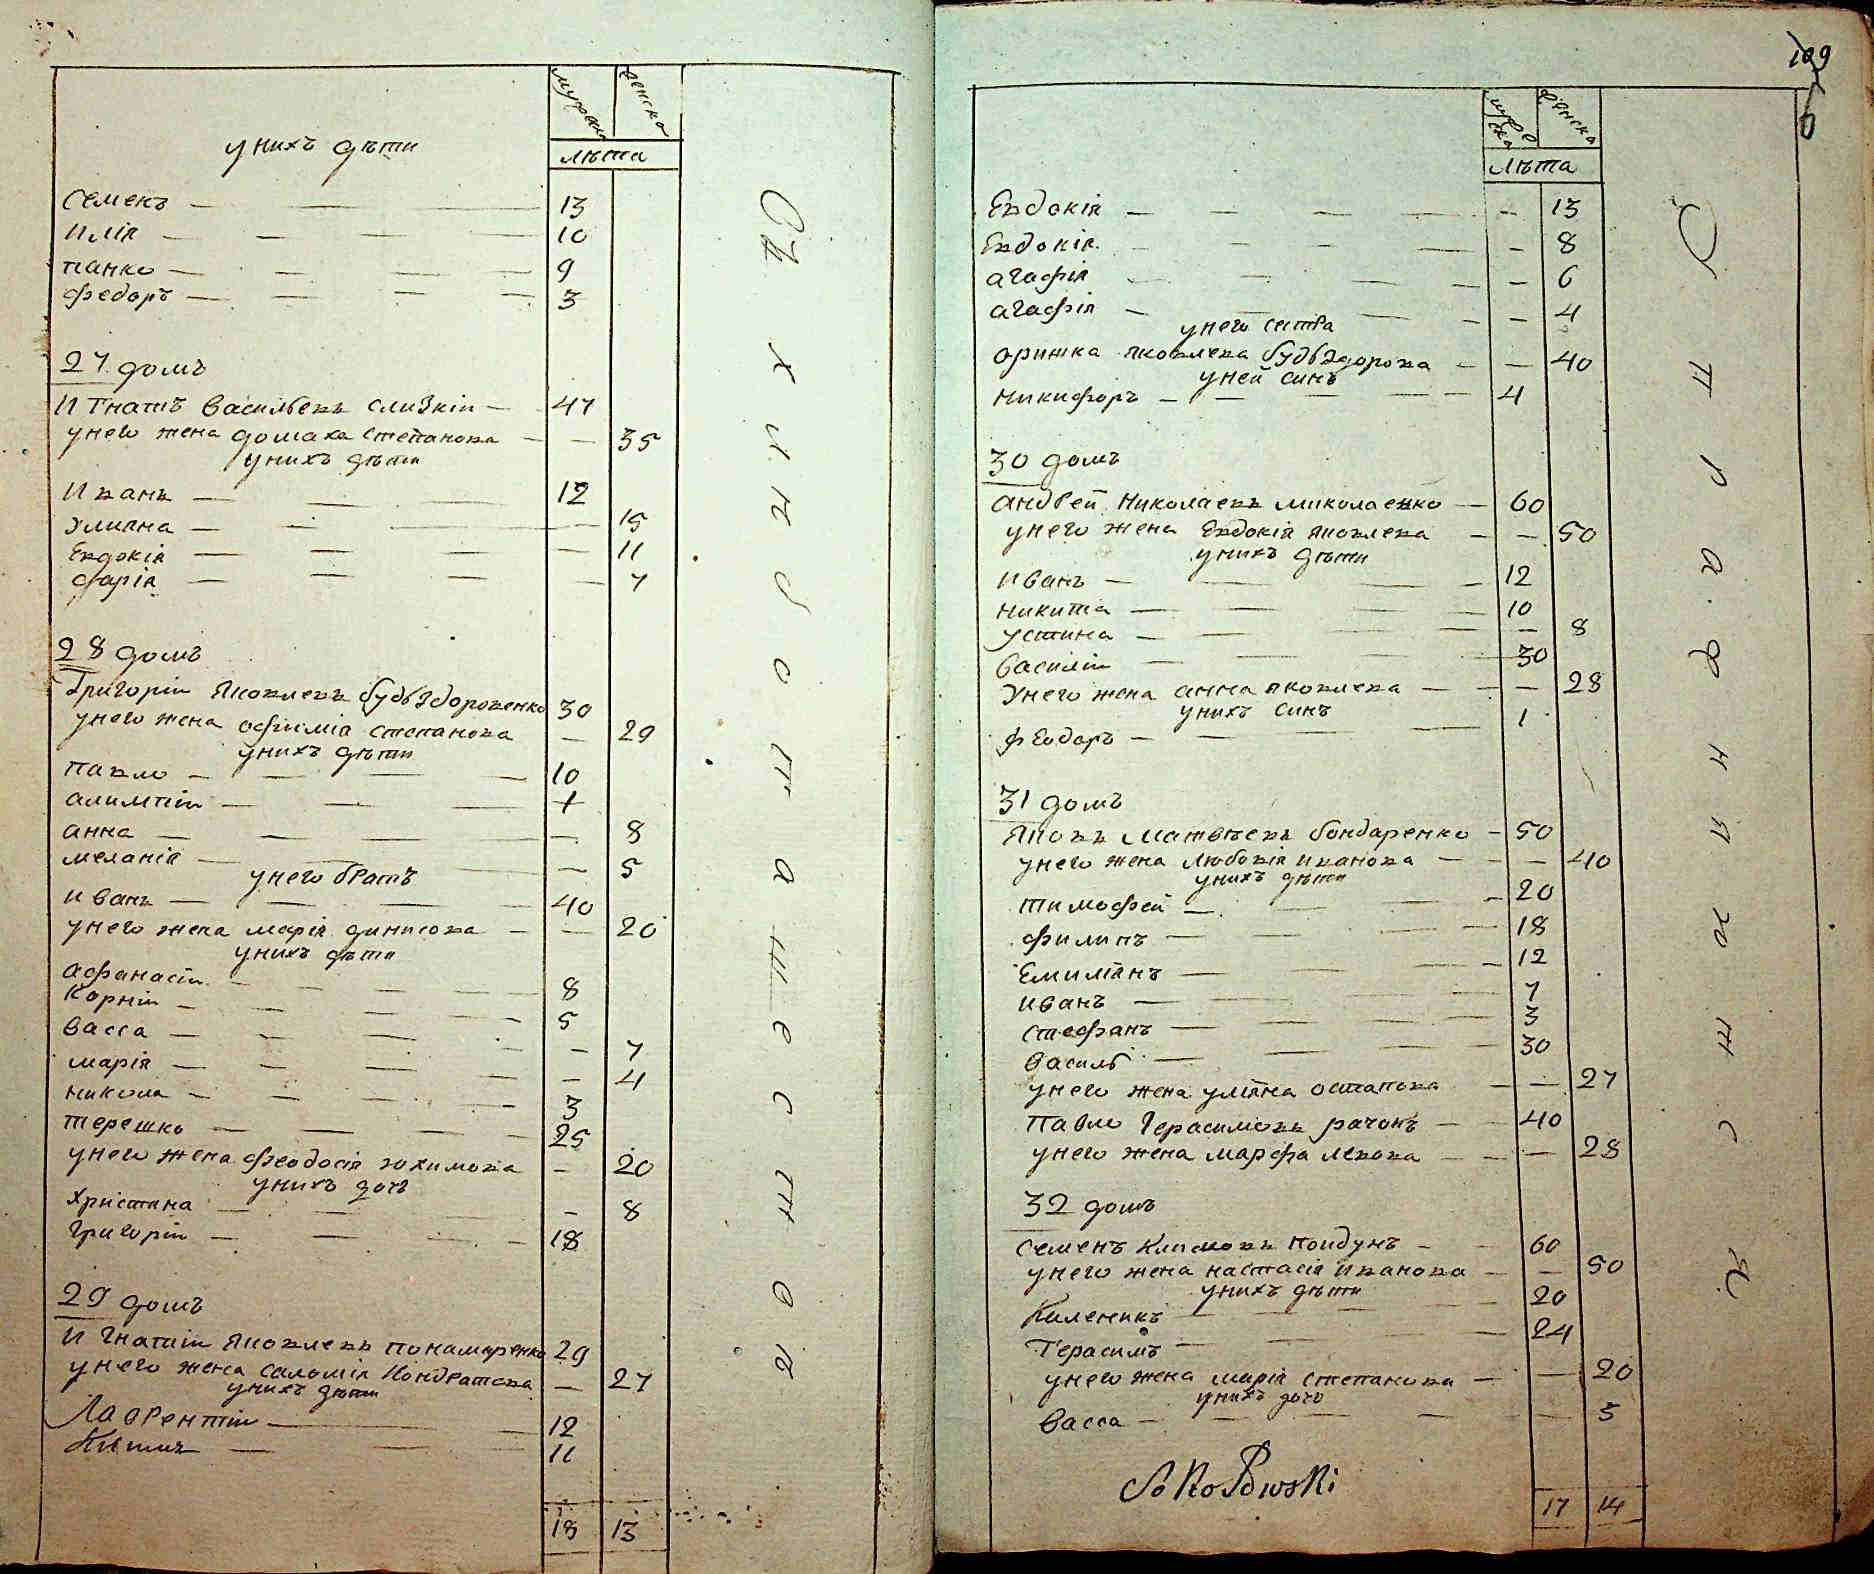 мужеска женска
у нихъ дѣти
лѣта
Семенъ — 13
Илія — 10
панко — 9
федоръ — 3
27 домъ
Игнатъ васильевъ слизкіи — 47
у него жена домаха степанова — 35
у нихъ дѣти
Иванъ — 12
улияна — 15
Евдокія — 11
фарія — 7
28 домъ
Григоріи яковлевъ будьздоровенко 30
у него жена офимія степанова — 29
у нихъ дѣти
павло — 10
алимпіи —
анна — 8
меланія — 5
у него братъ
иванъ — 40
у него жена марія динисова — 20
у нихъ дѣти
афанасіи — 8
Корніи — 5
васса — 7
марія — 4
никола — 3
терешко — 25
у него жена феодосія юхимова — 20
у нихъ дочь
христина — 8
григоріи — 18
29 домъ
Игнатіи яковлевъ понамаренко 29
у него жена саломія Кондратова — 27
у нихъ дѣти
Лаврентіи — 12
Климъ — 11
18 13
109
6
мужеска женска
лѣта
Евдокія — 13
Евдокія — 8
агафія — 6
агафія — 4
у него сестра
оришка яковлева будьздорова — 40
у ней синъ
никифоръ — 4
30 домъ
андрей Николаевъ миколаенко — 60
у него жена Евдокія яковлева — 50
у нихъ дѣти
иванъ — 12
никита — 10
устина — 8
василіи — 30
у него жена анна яковлева — 28
у нихъ синъ
феодоръ — 1
31 домъ
яковъ матвѣевъ бондаренко — 50
у него жена любовія иванова — 40
у нихъ дѣти
тимофей — 20
филипъ — 18
Емиліянъ — 12
иванъ — 7
стефанъ — 3
василь — 30
у него жена уліяна остапова — 27
павло Герасимовъ рачокъ — 40
у него жена марфа левова — 28
32 домъ
семенъ климовъ койдунъ — 60
у него жена настасія иванова — 50
у нихъ дѣти
Каленикъ — 20
Герасимъ — 24
у него жена марія степанова — 20
у нихъ дочь
васса — 5
Sokołowski
17 14